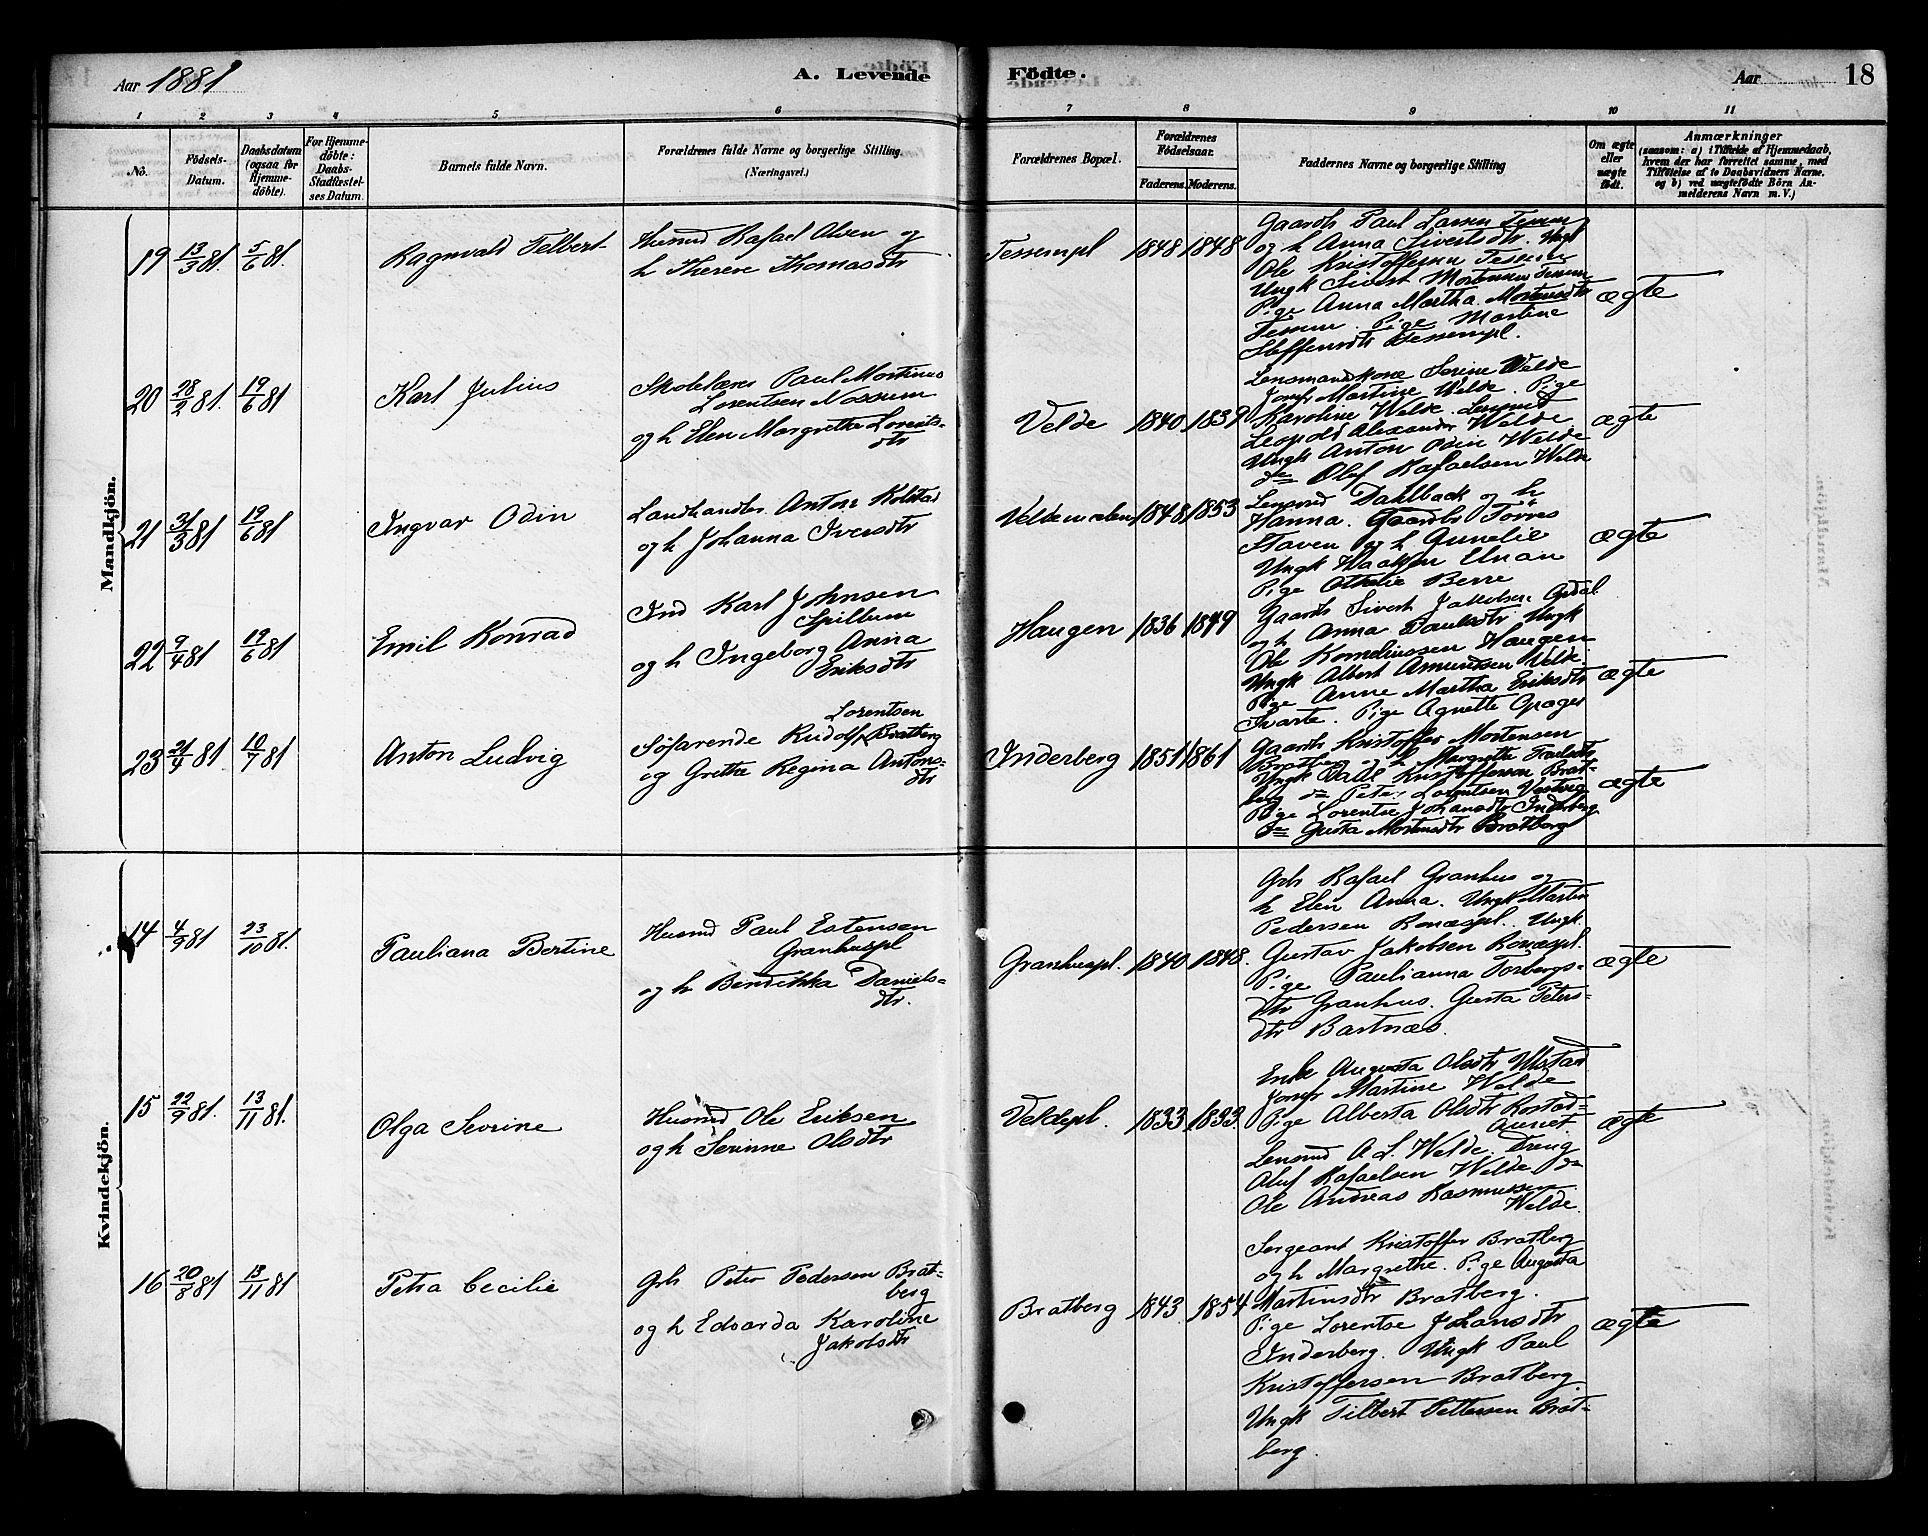 Aar 1881
A. Levende
Födte.
Aar
18
1
2
3
4
5
6
7
8
9
10
11
No.
Födsels-
Datum.
Daabsdatum
(ogsaa for
Hjemme-
döbte).
For Hjemme-
döbte:
Daabs-
Stadfæstel-
ses Datum.
Barnets fulde Navn.
Forældrenes fulde Navne og borgerlige Stilling.
(Næringsvei.)
Forældrenes Bopæl.
Forældrenes
Födselsaar.
Faderens.
Moderens.
Faddernes Navne og borgerlige Stilling
Om ægte
eller
uægte
födt.
Anmærkninger
(saasom: a) i Tilfælde af Hjemmedaab,
hvem der har forrettet samme, med
Tilföielse af to Daabsvidners Navne,
og b) ved uægtefödte Börn An-
melderens Navn m.V.)
Mandkjön.
19
13/3 81.
5/6 81.
Ragnvald Telbert
Husmd Rafael Olsen og
h Therese Thomasdtr
Tessempl
1848
1848
Gaardb Paul Larsen Tessem
og h Anna Sivertsdtr. Ungk
Ole Kristoffersen Tessem
Ungk Sivert Mortensen Tessem
Pige Anna Martha Mortensdtr
Tessem. Pige Martine
Steffensdtr Tessempl.
ægte
20
28/2 81.
19/6 81
Karl Julius
Skolelærer Paul Martinus
Lorentsen Nossum
og h Elen Margrethe Lorents-
dtr
Velde
1840
1839
Lensmandkone Serine Welde
Jomf Martine Welde. Pige
Karoline Welde. Lensmd
Leopold Alexander Welde
Ungk Anton Odin Welde
do Oluf Rafaelsen Welde
ægte
21
31/3 81
19/6 81
Ingvar Odin
Landhandler Anton Kolstad
og h Johanna Iversdtr
1848
1853
Lensmd Dahlback og h
Hanna. Gaardb Torres
Staven og h Gunelie
Ungk Haakon Elnan
Pige Othelie Berre
ægte
22
9/4 81
19/6 81
Emil Konrad
Ind Karl Johnsen
Spillum
og h Ingeborg Anna
Eriksdtr
Haugen
1836
1849
Gaardb Sivert Jakobsen Opdal
og h Anna Paulsdtr Ungk
Ole Kornelinssen Haugen
Ungk Albert Amundsen Velde.
Pige Anne Martha Eriksdtr
Svarte. Pige Agnette
ægte
23
21/4 81
10/7 81
Anton Ludvig
Lorentsen
Söfarende Rudolf Bratberg
og Grethe Regina Antons-
dtr
Inderberg
1851
1861
Gaardb Kristoffer Mortensen
Bratberg og h Margrethe
Ungk Paul Kristoffersen Brat-
berg do Peter Lorentsen
Pige Lorentse Johansdtr Inderberg
do Gusta Mortensdtr Bratberg
ægte
Kvindekjön.
14
4/9 81
23/10 81.
Pauliana Bertine
Husmd Paul Estensen
Granhuspl
og h Bendikka Daniels-
dtr.
Granhuspl.
1840
1848.
Grb Rafael Granhus og
h Elen Anna. Ungk Martin
Pedersen Romæspl. Ungk.
Gustav Jakobsen Romæspl.
Pige Paulianna Torbergs-
dtr Granhus. Gusta Peters-
dtr Bartnæs.
ægte
15
22/9 81.
13/11 81.
Olga Sevrine
Husmd Ole Eriksen
og h Serinne Olsdtr
Veldepl.
1833
1833.
Enke Augusta Olsdtr Ulstad
Jomf Martine Welde
Pige Alberta Olsdtr Rostad-
aunet
Lensmd A. L. Welde. Dreng
Oluf Rafaelsen Welde do
Ole Andreas Rasmussen
Welde.
ægte
16
20/8 81
13/11 81
Petra Cecilie
Grb Peter Pedersen Brat-
berg
og h Edvarda Karoline
Jakobsdtr
Bratberg
1843
1854
Sergeant Kristoffer Bratberg
og h Margrethe. Pige Augusta
Martinsdtr Bratberg.
Pige Lorentse Johansdtr
Inderberg. Ungk Paul
Kristoffersen Bratberg.
Ungk Tilbert Pettersen Brat-
berg.
ægte